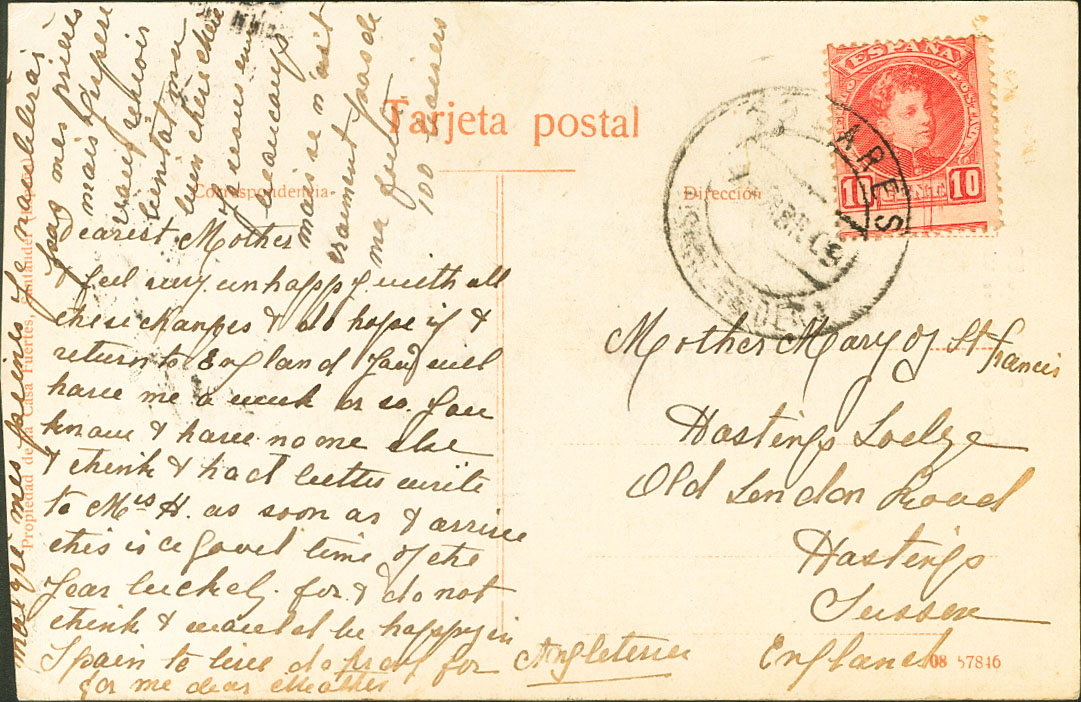 Tarjeta postal
Correspondencia
Dirección
ESPAÑA
10 10
Dearest Mother
I feel very unhappy with all
these changes & do hope if I
return to England you will
have me a week or so. You
know I have no one else
I think I had better write
to Mrs H. as soon as I arrive
this is a good time of the
year luckely. for I do not
think I would be happy in
Spain to live do pray for
for me dear Mother
malgré mes peines je n'oublerai
pas mes prières
mais j'espere
vous revoir
bientot ma
bien chere chere
beaucoup
mais ce n'est
vraiment pas de
ma faute
100 baisers
Mother Mary of St Francis
Hastings Lodge
Old London Road
Hastings
Sussex
England
Angleterre
Propiedad de la Casa Fuertes, Santander
57846